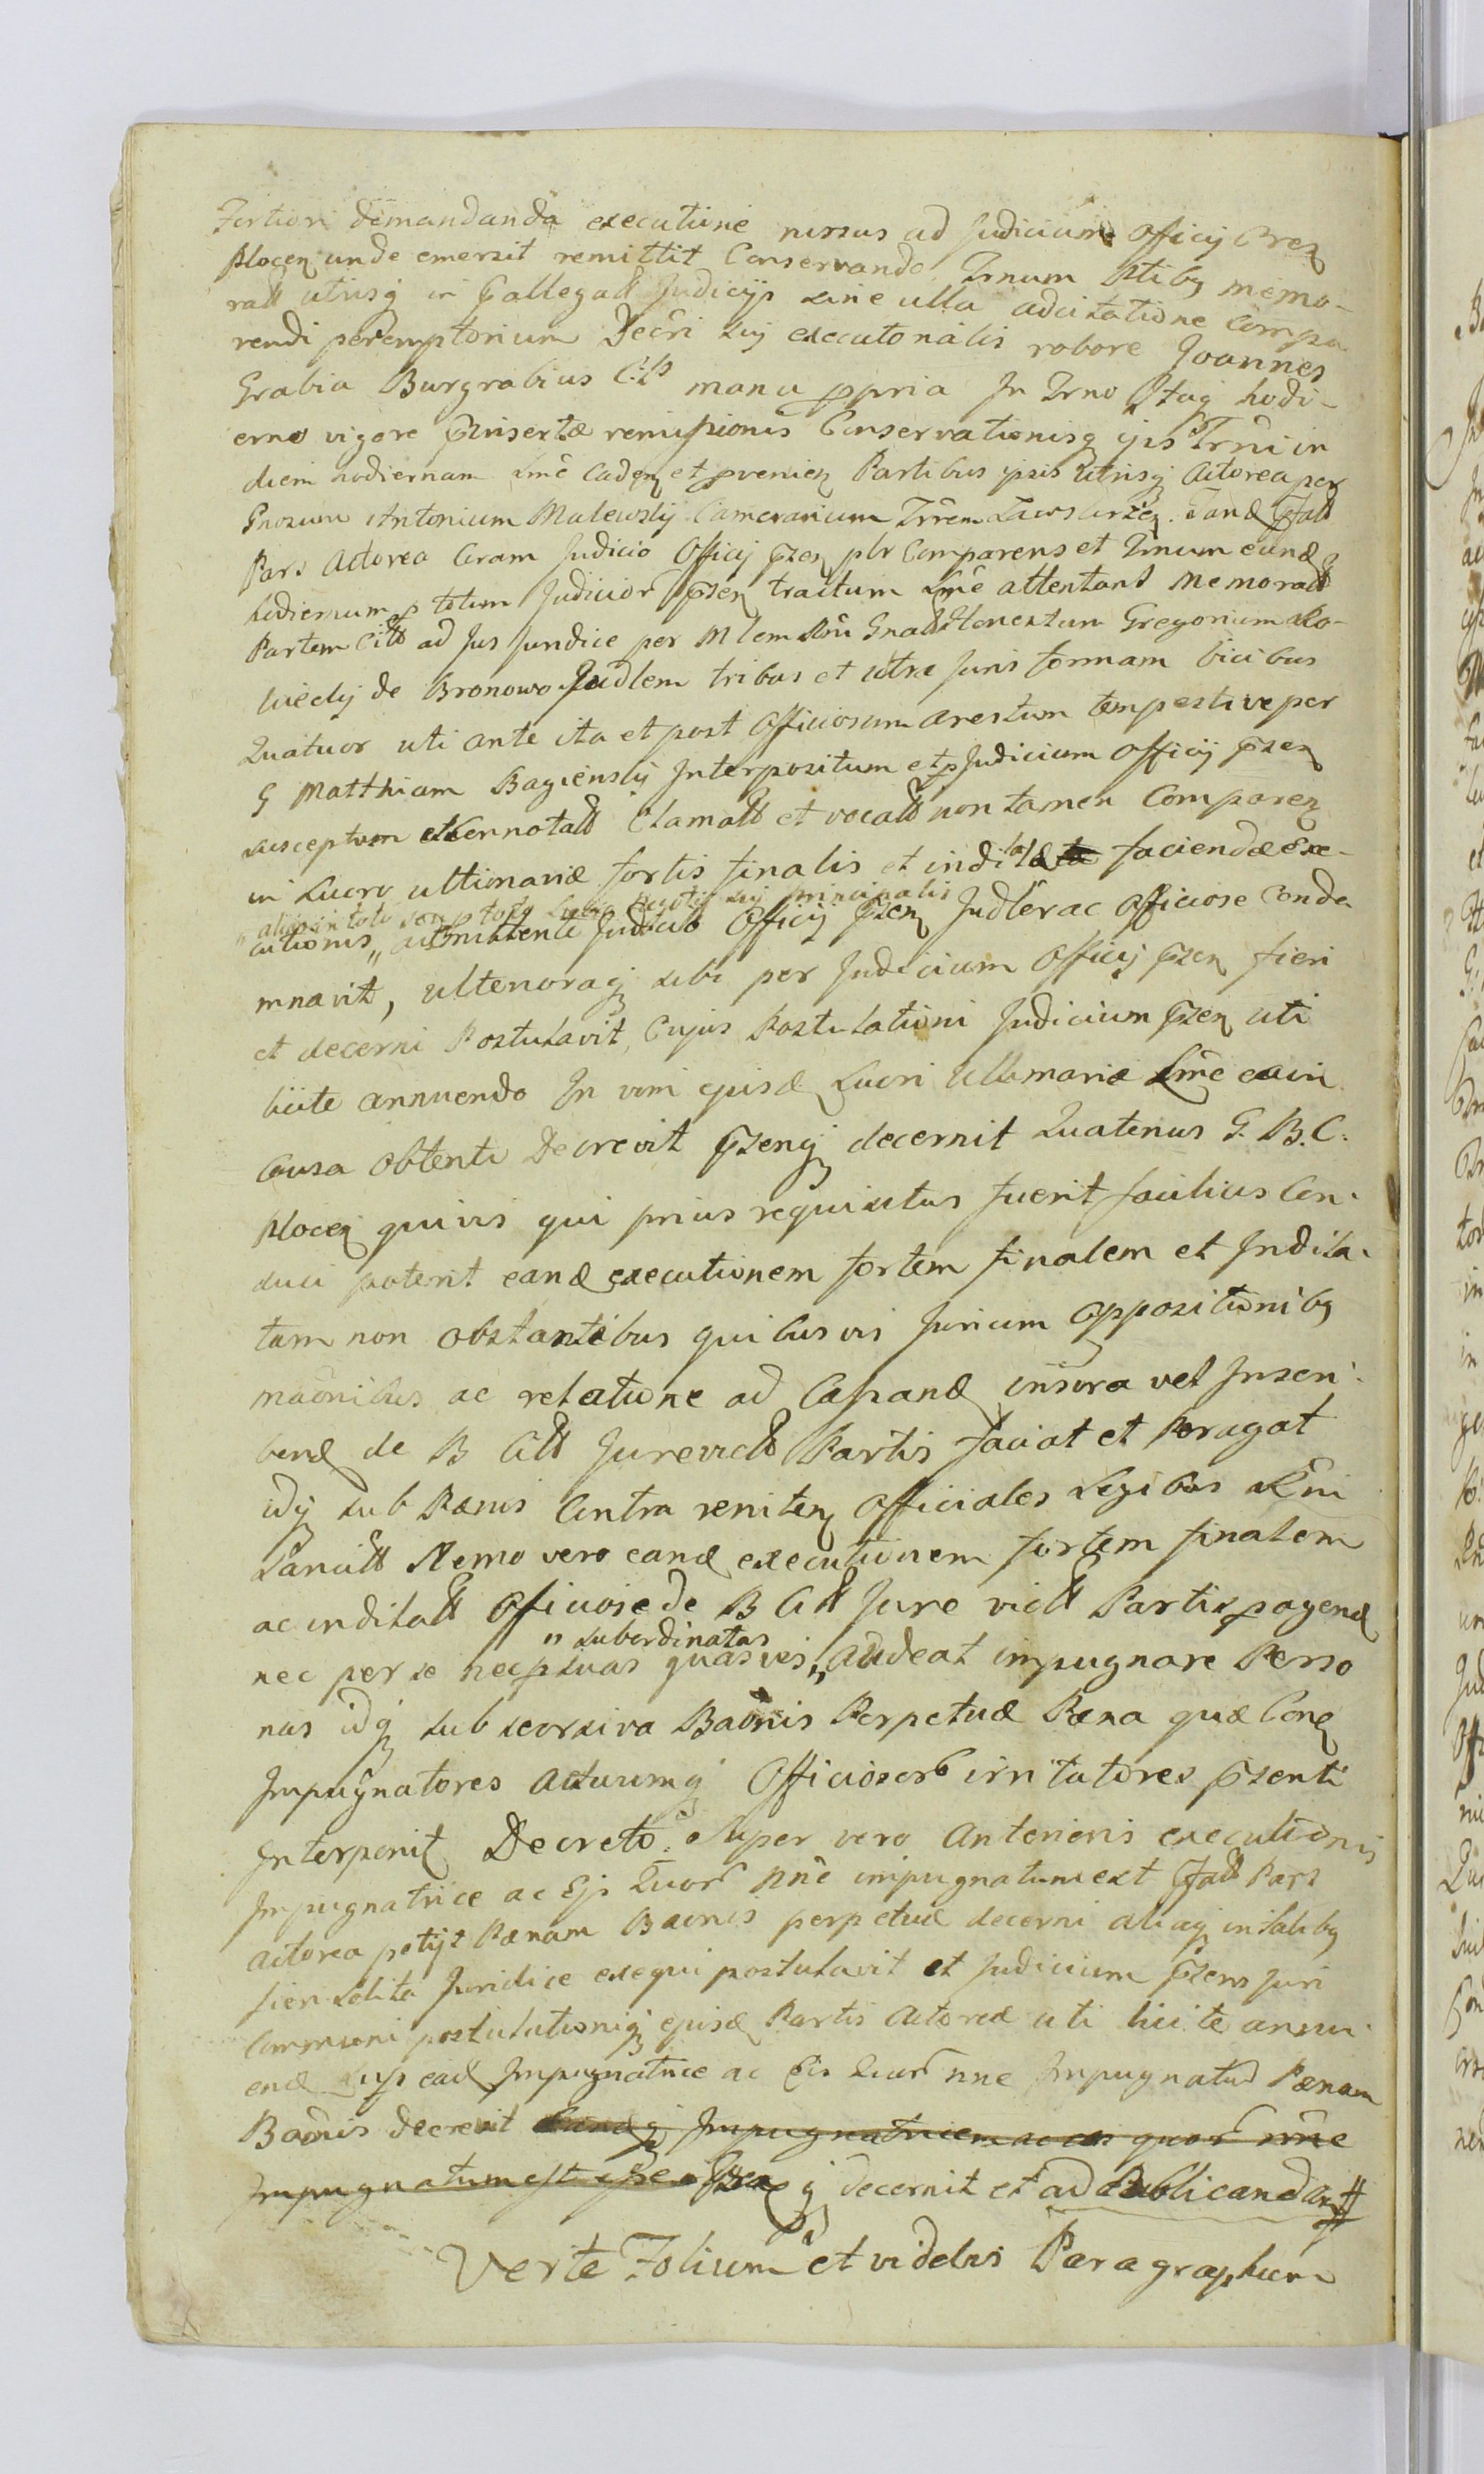 Fortiori demandanda executione rursus ad Judicium Officij Cren
Plocen unde emersit remittit Conservando Trnum Ptibq memo-
ratt utrisq in Prallegatt Judicijs sine ulla adcitatione compa
rendi peremptorium Decri sui executorialis robore Joannes
Grabia Burgrabius C: manu ppria In Trno Itaq hodi-
erno vigore pinsertæ remissionis Conservationisq ijs Trni in
diem hodiernam Lme caden et pvenien Partibus ipsis utrisq Actorea per
Gnosum Antonium Malewskj Camerarium Trrem Tand Pfatt
Pars Actorea Coram Judicio Officij pzen plr Comparens et Trnum eund
hodiernum p totum Judicior pzen tractum Lme attentans Memoratt
Partem Citt ad Jus Juridice per Mlem Rni Gnalem Honestum Gregorium Ro-
wieckj de Bronowo Judlem tribus et ultra Juris formam vicibus
Quatuor uti ante ita et post Officiosum arestum tempestive per
G Matthiam Bagienskj Interpositum et p Judicium Officij pzen
susceptum et Connotatt Clamatt et vocatt non tamen Comparen
in Lucro ultimariæ fortis finalis et indilatæ faciendæ Exe-
„ alias in toto seu p toto Lucro Negotij sui principalis
cutionis „ admittenti Judicio Officij pzen Judler ac Officiose Conde
mnavit, ulterioraq sibi per Judicium Officij pzen fieri
et decerni Postulavit, Cujus Postulationi Judicium pzen uti
licite annuendo In vim ejusd Lucri Ultimariæ Lme ea in
causa obtenti Decrevit pzenq decernit Quatenus G. B. C.
Plocen quivis qui prius requisitus fuerit facilius Con-
duci poterit eand executionem fortem finalem et Indila-
tam non obstantibus quibusvis Juricum oppositionibq
maonibus ac relatione ad Cassand inscra vel Inscri-
bend de B Citt Jurevictt Partis faciat et Peragat
idq sub Pænis Contra reniten Officiales Legibus Rni
Sancitt Nemo vero eand executionem fortem finalem
ac indilatt Oficiose de B Citt Jure victt Partis pagend
„ subordinatas
nec per se nec p suas quasvis „ audeat impugnare Perso
nas idq sub seorsiva Baonis Perpetuæ Pæna quæ Cone
Impugnatores Actuumq Officiosor irritatores pzenti
Interponit Decreto. Super vero Anterioris executionis
Impugnatrice ac Ejs Quor nne impugnatum ext Pfatt Pars
Actorea petijt Pænam Baonis perpetuæ decerni aliaq in talibq
fieri solita Juridice exequi postulavit et Judicium pzens Juri
Communi postulationiq ejusd Partis Actoreæ uti licite annu-
end Sup ead Impugnatrice ac Eis Quor nne Impugnatum Pænam
Baonis decrevit Eandq Impugnatricem ac eos quor nne
Impugnatum est esse pzen q decernit et ad Publicand #
Verte Folium et videbis Paragraphum